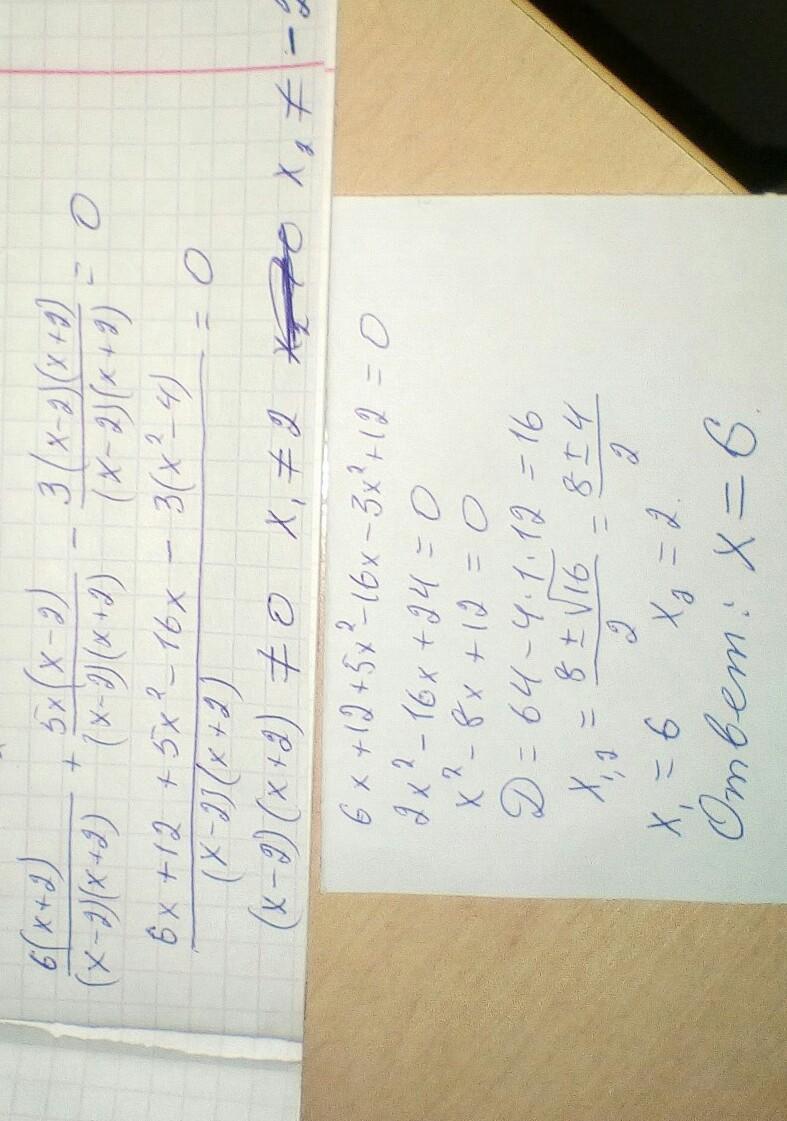 6(x+2)/(x-2)(x+2) + 5x(x-2)/(x-2)(x+2) - 3(x-2)(x+2)/(x-2)(x+2) = 0
6x+12+5x²-16x-3(x²-4)/(x-2)(x+2) = 0
(x-2)(x+2) ≠ 0 x₁ ≠ 2 x₂ ≠ -2
6x+12+5x²-16x-3x²+12=0
2x²-16x+24=0
x²-8x+12=0
D=64-4·1·12=16
x₁,₂ = 8±√16/2 = 8±4/2
x₁=6 x₂=2.
Ответ: x=6.